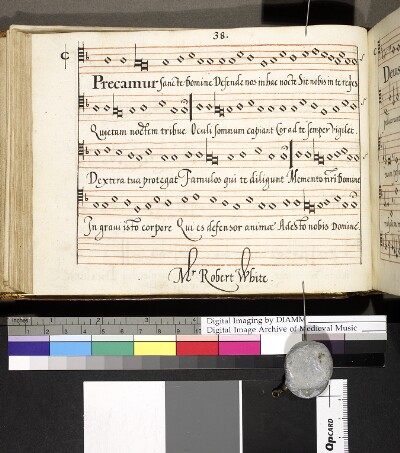 38.
C
Precamur sancte Domine Defende nos in hac nocte Sit nobis in te requies
Quietam noctem tribue Oculi somnum capiant Cor ad te semper vigilet
Dextera tua protegat Famulos qui te diligunt Memento nri Domine
In gravi isto corpore Qui es defensor animæ Adesto nobis Domine.
Mr Robert White.
Deus
inches 1 2 3 4
Digital Imaging by DIAMM
Digital Image Archive of Medieval Music
QPCARD